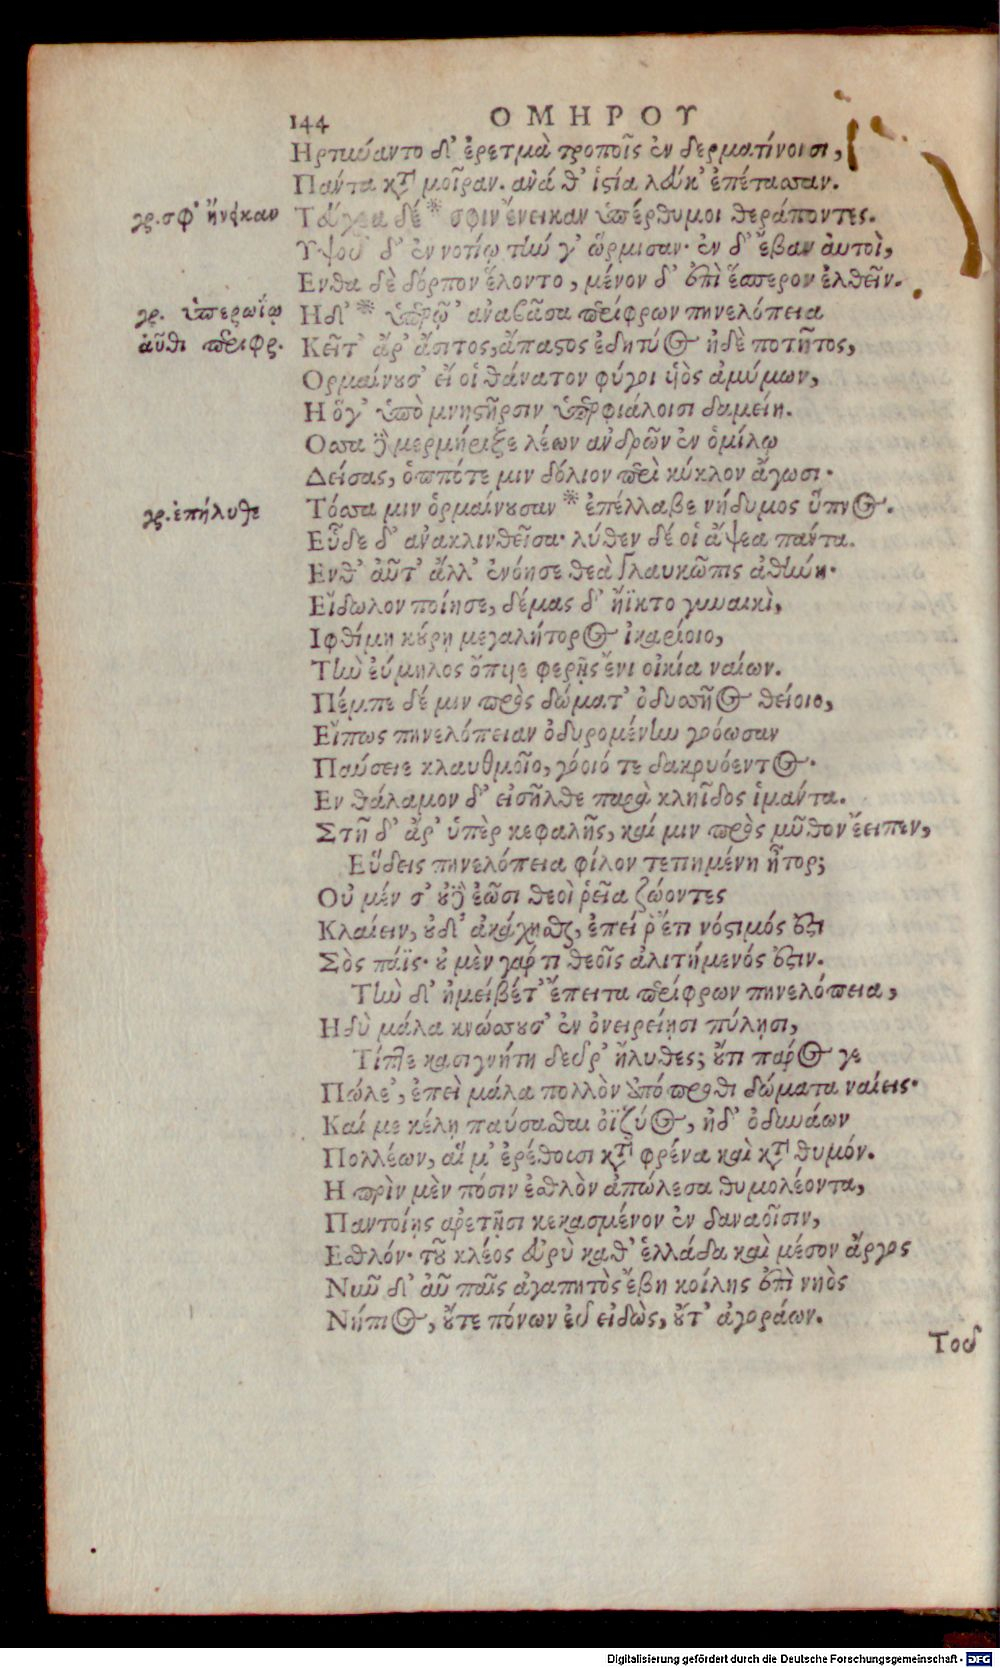 144 ΟΜΗΡΟΥ
Ηρτιώαντο δ' ἐρετμὰ τροποῖς ἐν δερματίνοισι,
Πάντα κτ μοῖραν. ἀνά θ' ἱστία λευκ' ἐπέτασσαν.
γρ. σφ' ἤνεικαν Τεύχεα δέ * σφιν ἔνεικαν ὑπέρθυμοι θεράποντες.
Υψοῦ δ' ἐν νοτίῳ τίω γ' ὥρμισαν· ἐν δ' ἔβαν αὐτοὶ,
Ενθα δὲ δόρπον ἕλοντο, μένον δ' ἐπὶ ἕσπερον ἐλθεῖν.
γρ. ὑπερωΐῳ Η δ' * ὑπερῷ' ἀναβᾶσα περίφρων πηνελόπεια
αὖθι περιφρ. Κεῖτ' ἄρ' ἄσιτος, ἄπαστος ἐδητύος ἠδὲ ποτῆτος,
Ορμαίνουσ' εἴ οἱ θάνατον φύγοι υἱὸς ἀμύμων,
Η ὅγ' ὑπὸ μνηστῆρσιν ὑπερφιάλοισι δαμείη.
Οσσα δὲ μερμήριξε λέων ἀνδρῶν ἐν ὁμίλῳ
Δείσας, ὁππότε μιν δόλιον περὶ κύκλον ἄγωσι·
γρ. ἐπήλυθε Τόσσα μιν ὁρμαίνουσαν * ἐπέλλαβε νήδυμος ὕπνος.
Εὗδε δ' ἀνακλινθεῖσα· λύθεν δέ οἱ ἅψεα πάντα.
Ενθ' αὖτ' ἄλλ' ἐνόησε θεὰ γλαυκῶπις ἀθήνη·
Εἴδωλον ποίησε, δέμας δ' ἤϊκτο γυναικὶ,
Ιφθίμη κούρῃ μεγαλήτορος ἰκαρίοιο,
Τὴν εὔμηλος ὄπυιε φερῇς ἔνι οἰκία ναίων.
Πέμπε δέ μιν πρὸς δώματ' ὀδυσσῆος θείοιο,
Εἵπως πηνελόπειαν ὀδυρομένην γοόωσαν
Παύσειε κλαυθμοῖο, γόοιό τε δακρυόεντος·
Εν θάλαμον δ' εἰσῆλθε παρὰ κληῖδος ἱμάντα.
Στῆ δ' ἄρ' ὑπὲρ κεφαλῆς, καί μιν πρὸς μῦθον ἔειπεν,
Εὕδεις πηνελόπεια φίλον τετιημένη ἦτορ;
Οὐ μέν σ' οὐδὲ ἐῶσι θεοὶ ῥεῖα ζώοντες
Κλαίειν, οὐδ' ἀκάχησθαι, ἐπεί ῥ' ἔτι νόστιμός ἐστι
Σὸς πάϊς· οὐ μὲν γάρ τι θεοῖς ἀλιτήμενός ἐστιν.
Τὴν δ' ἠμείβετ' ἔπειτα περίφρων πηνελόπεια,
Ηδὺ μάλα κνώσσουσ' ἐν ὀνειρείῃσι πύλῃσι,
Τίπτε κασιγνήτη δεῦρ' ἤλυθες; οὔτι πάρος γε
Πώλε', ἐπεὶ μάλα πολλὸν ἀπόπροθι δώματα ναίεις·
Καί με κέλῃ παύσασθαι ὀϊζύος, ἠδ' ὀδυνάων
Πολλέων, αἵ μ' ἐρέθουσι κτ φρένα καὶ κτ θυμόν.
Η πρὶν μὲν πόσιν ἐσθλὸν ἀπώλεσα θυμολέοντα,
Παντοίῃς ἀρετῇσι κεκασμένον ἐν δαναοῖσιν,
Εσθλόν· τοῦ κλέος εὐρὺ καθ' ἑλλάδα καὶ μέσον ἄργος
Νῦν δ' αὖ παῖς ἀγαπητὸς ἔβη κοίλης ἐπὶ νηὸς
Νήπιος, οὔτε πόνων εὖ εἰδὼς, οὔτ' ἀγοράων.
Τοῦ
Digitalisierung gefördert durch die Deutsche Forschungsgemeinschaft - DFG